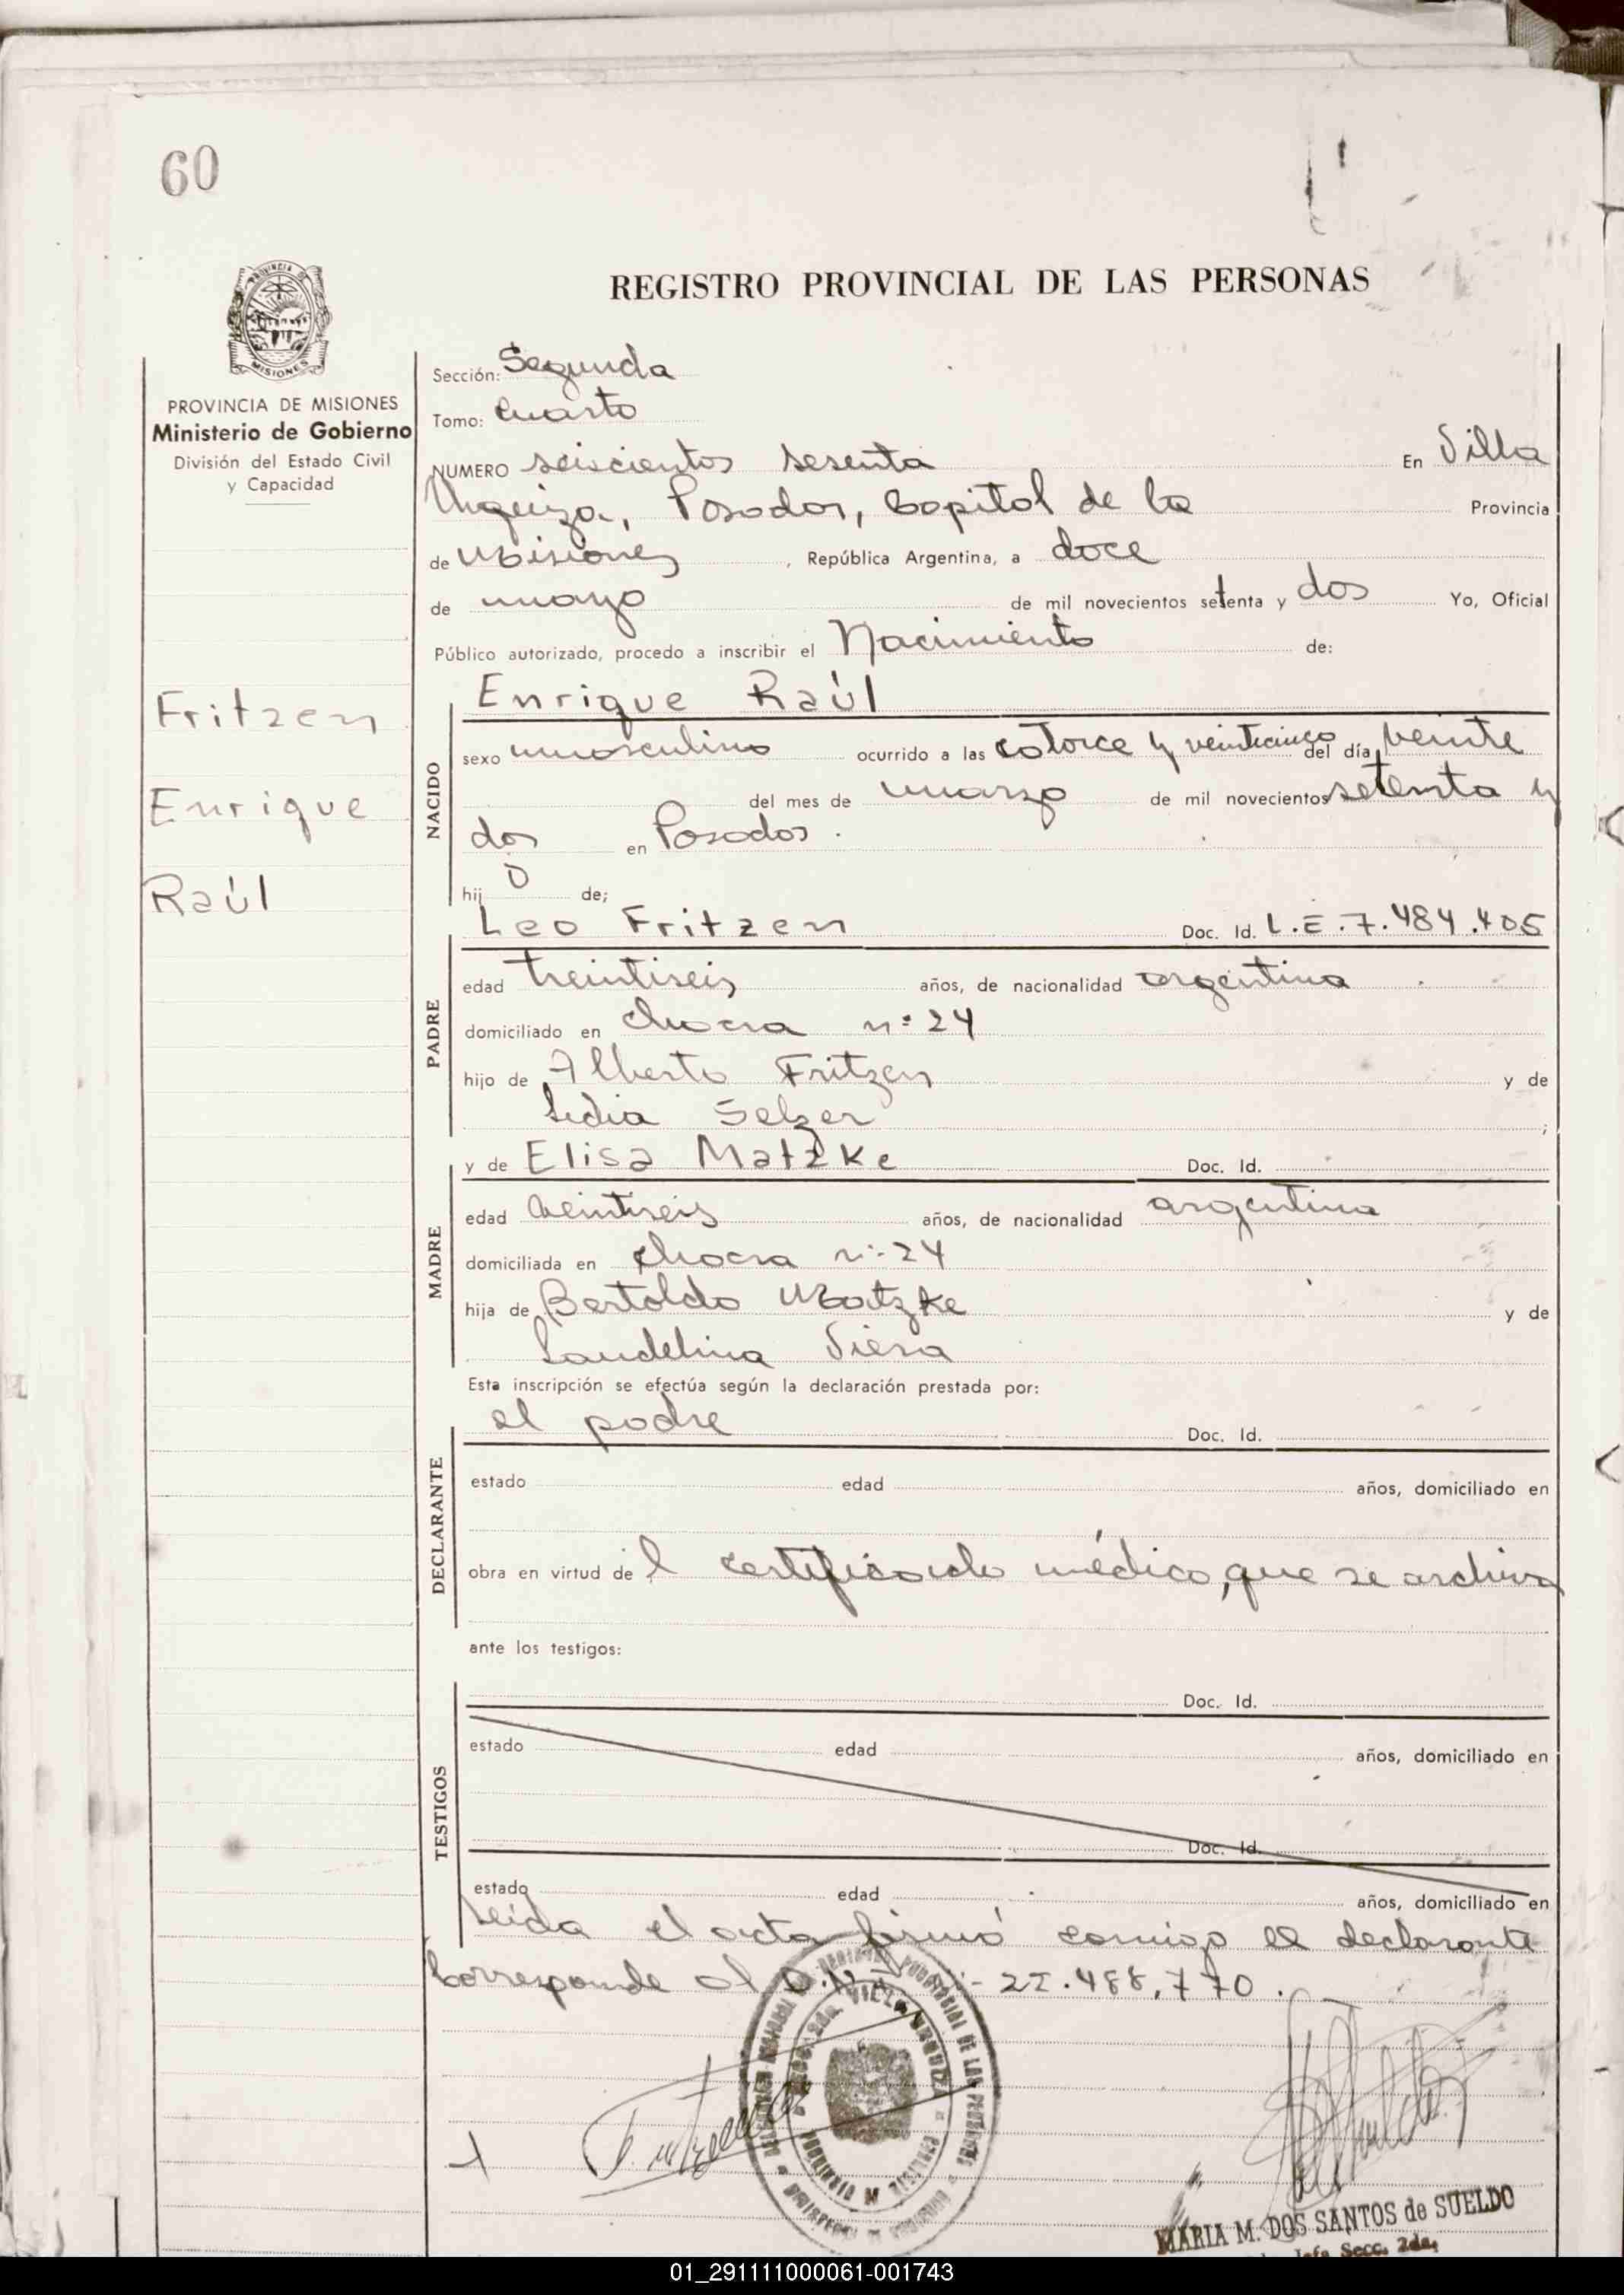 60
REGISTRO PROVINCIAL DE LAS PERSONAS
PROVINCIA DE MISIONES
Ministerio de Gobierno
División del Estado Civil
y Capacidad
Fritzen
Enrique
Raúl
Sección: Segunda
Tomo: Cuarto
NUMERO seiscientos sesenta En Villa
Urquiza, Posadas, Capital de la Provincia
de Misiones, República Argentina, a doce
de mayo de mil novecientos setenta y dos Yo, Oficial
Público autorizado, procedo a inscribir el Nacimiento de:
NACIDO
Enrique Raúl
sexo masculino ocurrido a las catorce y veinticinco del día veinte
del mes de marzo de mil novecientos setenta y
dos en Posadas.
hijo de;
PADRE
Leo Fritzen Doc. Id. L.E.7.484.405
edad treintiseis años, de nacionalidad argentina
domiciliado en chacra nº 24
hijo de Alberto Fritzen y de
Lidia Selzer;
MADRE
y de Elisa Matzke Doc. Id.
edad veintiseis años, de nacionalidad argentina
domiciliada en chacra nº 24
hija de Bertoldo Matzke y de
Laudelina Viera
Esta inscripción se efectúa según la declaración prestada por:
DECLARANTE
el padre Doc. Id.
estado edad años, domiciliado en
obra en virtud del certificado médico, que se archiva
ante los testigos:
TESTIGOS
Doc. Id.
estado edad años, domiciliado en
Doc. Id.
estado edad años, domiciliado en
Leída el acta firmó conmigo el declarante
Corresponde al 22.488.770.
MARIA M. DOS SANTOS de SUELDO
Jefe Secc. 2da.
01_291111000061-001743